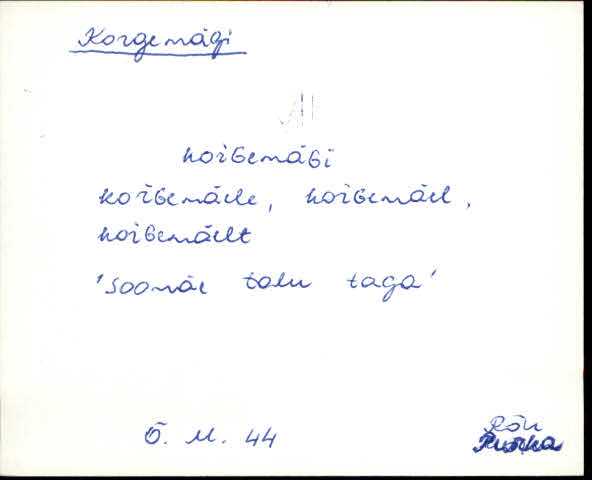 Korgemägi
Al
koŕGemäGi
koŕGemäele, koŕGemäel,
koŕGemäelt
'soomäe talu taga'
Õ. M. 44
Rõu